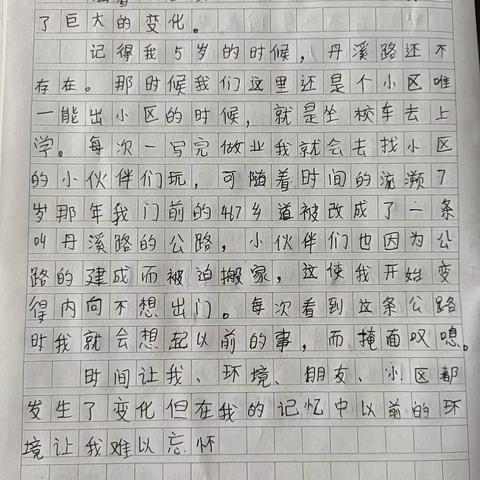 了巨大的变化。
记得我5岁的时候，丹溪路还不
存在。那时候我们这里还是个小区唯
一能出小区的时候，就是坐校车去上
学。每次一写完做业我就会去找小区
的小伙伴们玩，可随着时间的流濒7
岁那年我门前的467乡道被改成了一条
叫丹溪路的公路，小伙伴们也因为公
路的建成而被迫搬家，这使我开始变
得内向不想出门。每次看到这条公路
时我就会想起以前的事，而掩面叹息。
时间让我、环境、朋友、小区都
发生了变化但在我的记忆中以前的环
境让我难以忘怀